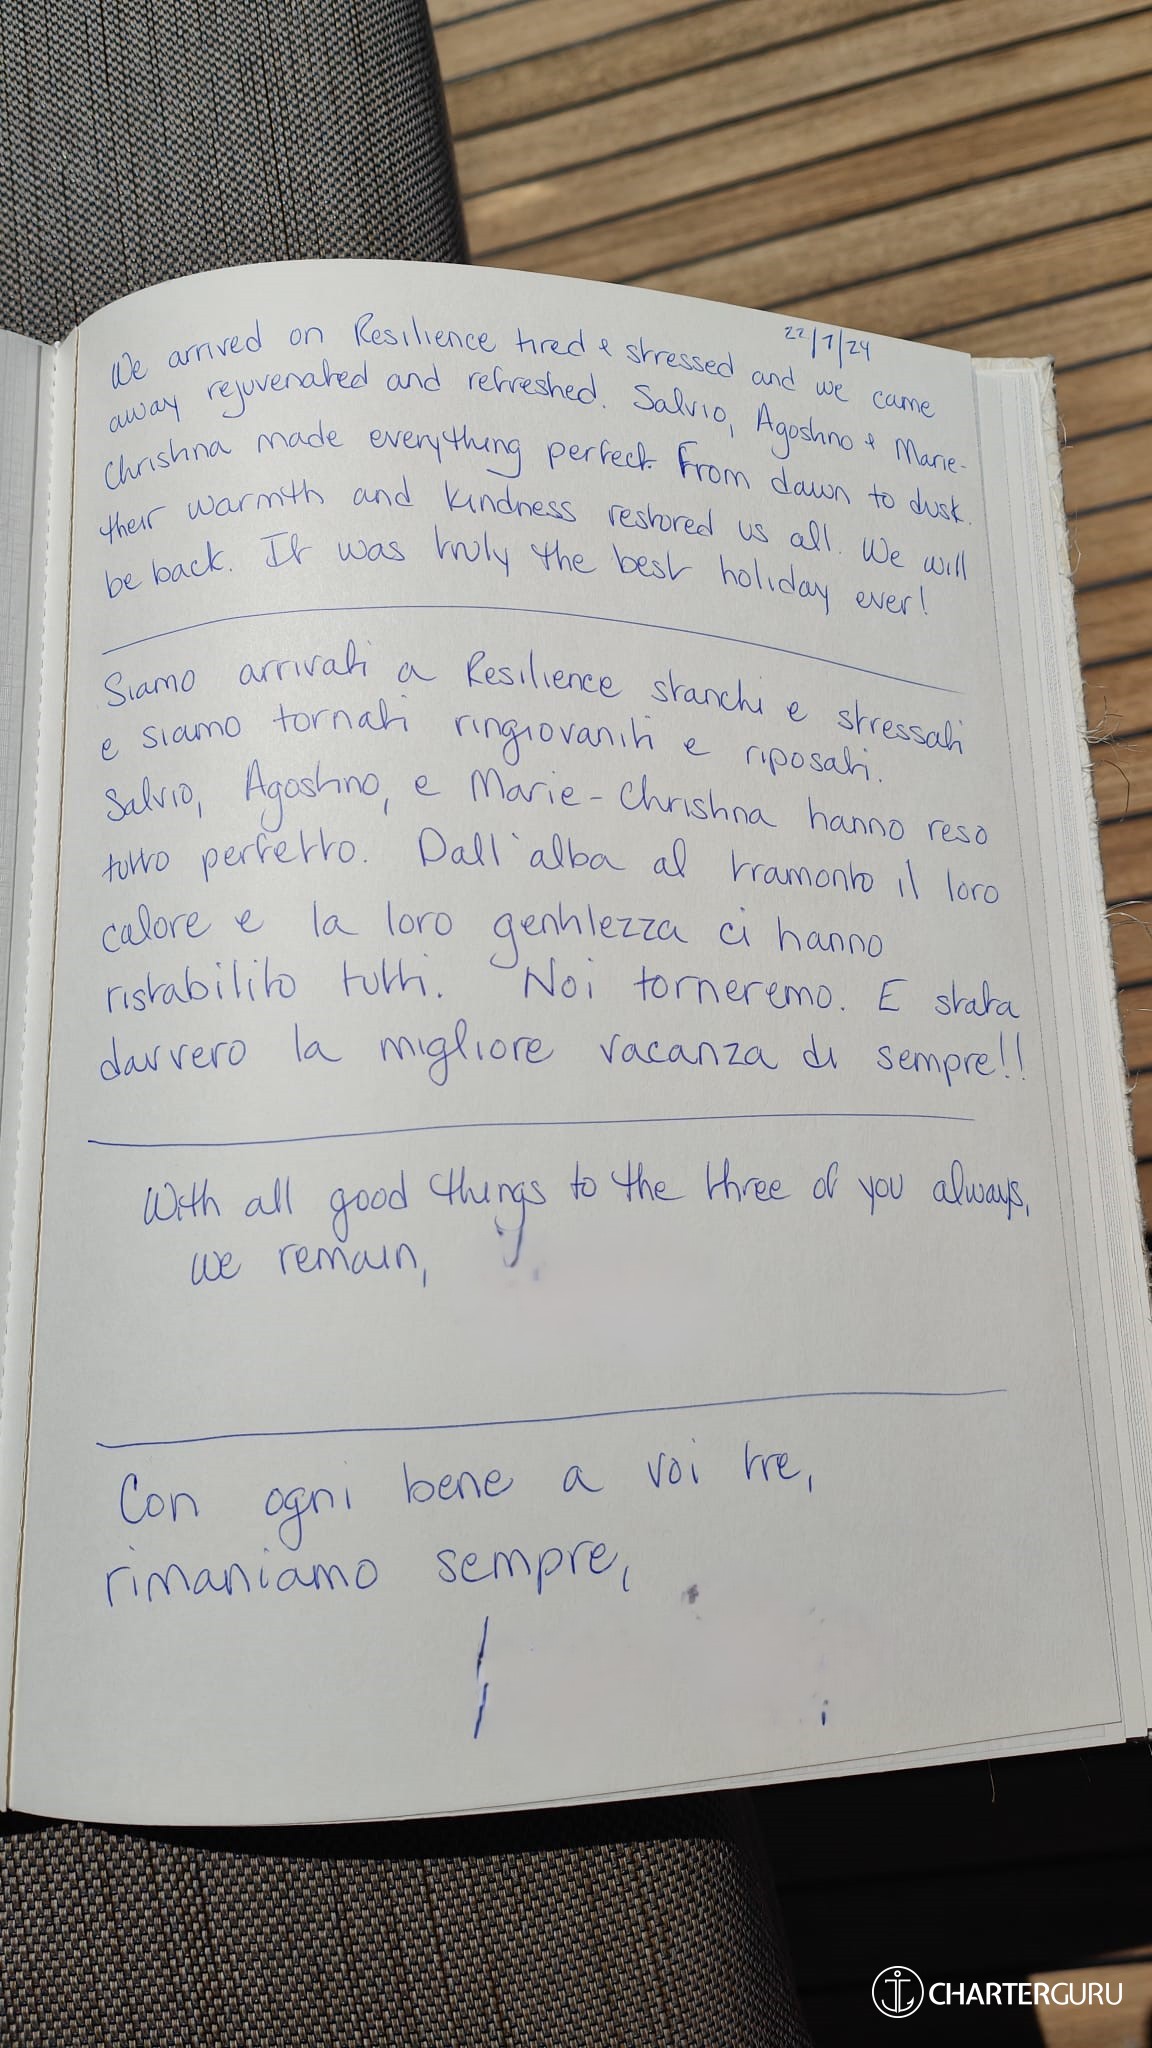 22/7/24
We arrived on Resilience tired & stressed and we came
away rejuvenated and refreshed. Salvio, Agostino & Marie-
Christina made everything perfect. From dawn to dusk.
their warmth and kindness restored us all. We will
be back. It was truly the best holiday ever!
Siamo arrivati a Resilience stanchi e stressati
e siamo tornati ringiovaniti e riposati.
Salvio, Agostino, e Marie-Christina hanno reso
tutto perfetto. Dall'alba al tramonto il loro
calore e la loro gentilezza ci hanno
ristabilito tutti. Noi torneremo. E stata
davvero la migliore vacanza di sempre!!
With all good things to the three of you always,
we remain,
Con ogni bene a voi tre,
rimaniamo sempre,
CHARTERGURU